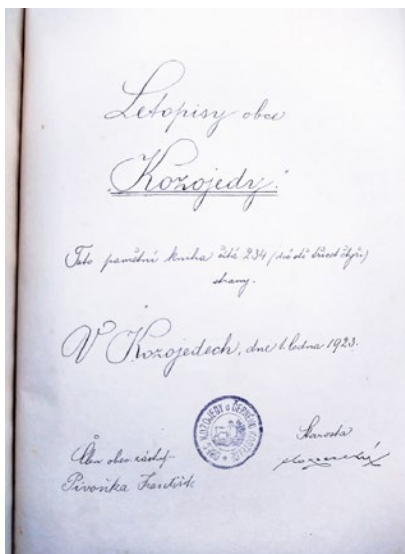 Letopisy obce
Kozojedy.
Tato pamětní kniha čítá 234 (dvě stě třicet čtyři)
strany.
V Kozojedech, dne 1. ledna 1923.
KOZOJEDY u ČERNÝCH KOSTELCE
Starosta
Člen obec. zastup.
Pivoňka František